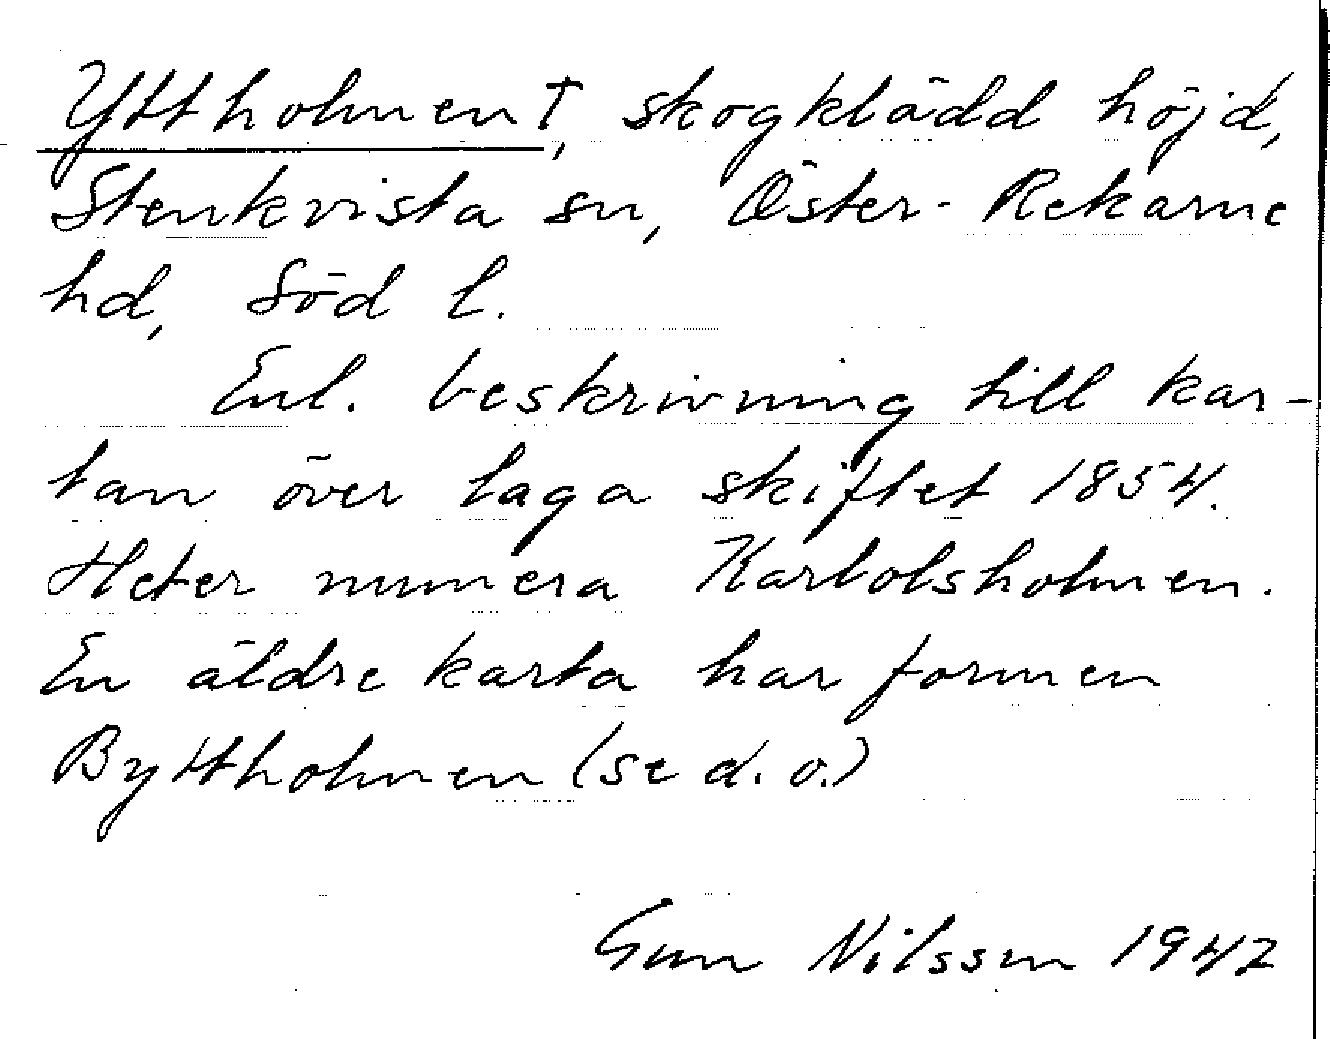 Yttholmen†, skogklädd höjd,
Stenkvista sn, Öster-Rekarne
hd, Söd l.
Enl. beskrivning till kar-
tan över laga skiftet 1854.
Heter numera Karlolsholmen.
En äldre karta har formen
Byttholmen (se d.o.)
Gun Nilsson 1942